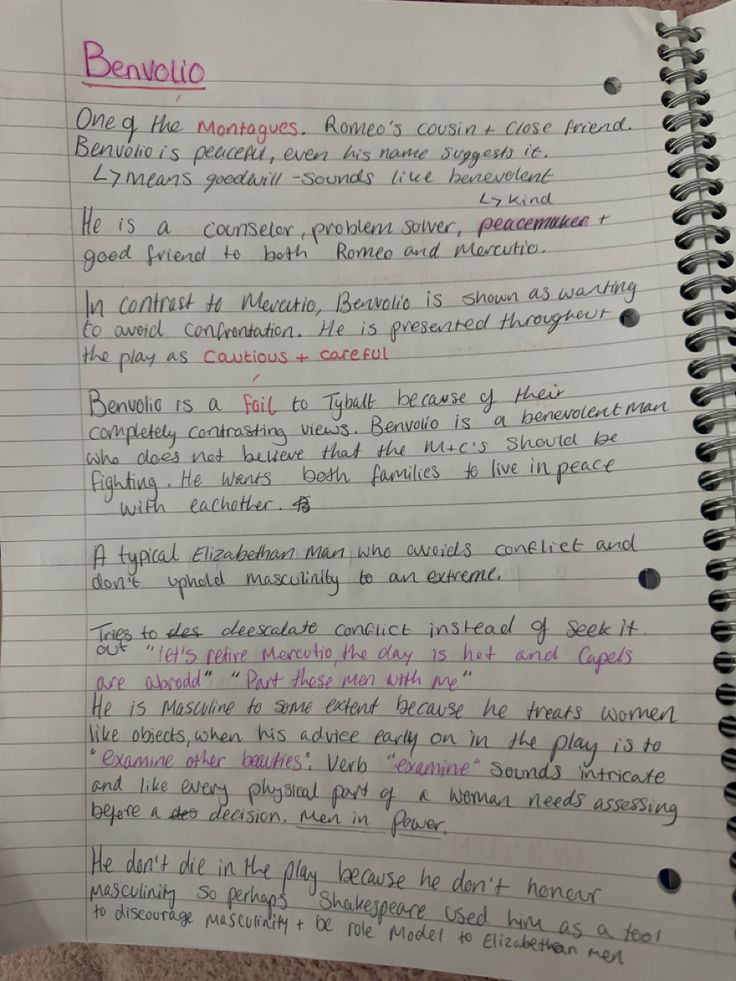 Benvolio
One of the Montagues. Romeo's cousin + close friend.
Benvolio is peaceful, even his name suggests it.
↳ means goodwill - sounds like benevolent
↳ kind
He is a counselor, problem solver, peacemaker +
good friend to both Romeo and Mercutio.
In contrast to Mercutio, Benvolio is shown as wanting
to avoid confrontation. He is presented throughout
the play as cautious + careful
Benvolio is a foil to Tybalt because of their
completely contrasting views. Benvolio is a benevolent man
who does not believe that the M+C's should be
fighting. He wants both families to live in peace
with eachother.
A typical Elizabethan man who avoids conflict and
don't uphold masculinity to an extreme.
Tries to des deescalate conflict instead of seek it
out "let's retire Mercutio, the day is hot and Capels
are abrodd" "Part these men with me"
He is masculine to some extent because he treats women
like objects, when his advice early on in the play is to
"examine other beauties". Verb "examine" sounds intricate
and like every physical part of a woman needs assessing
before a des decision. Men in power.
He don't die in the play because he don't honour
masculinity so perhaps Shakespeare used him as a tool
to discourage masculinity + be role model to Elizabethan men